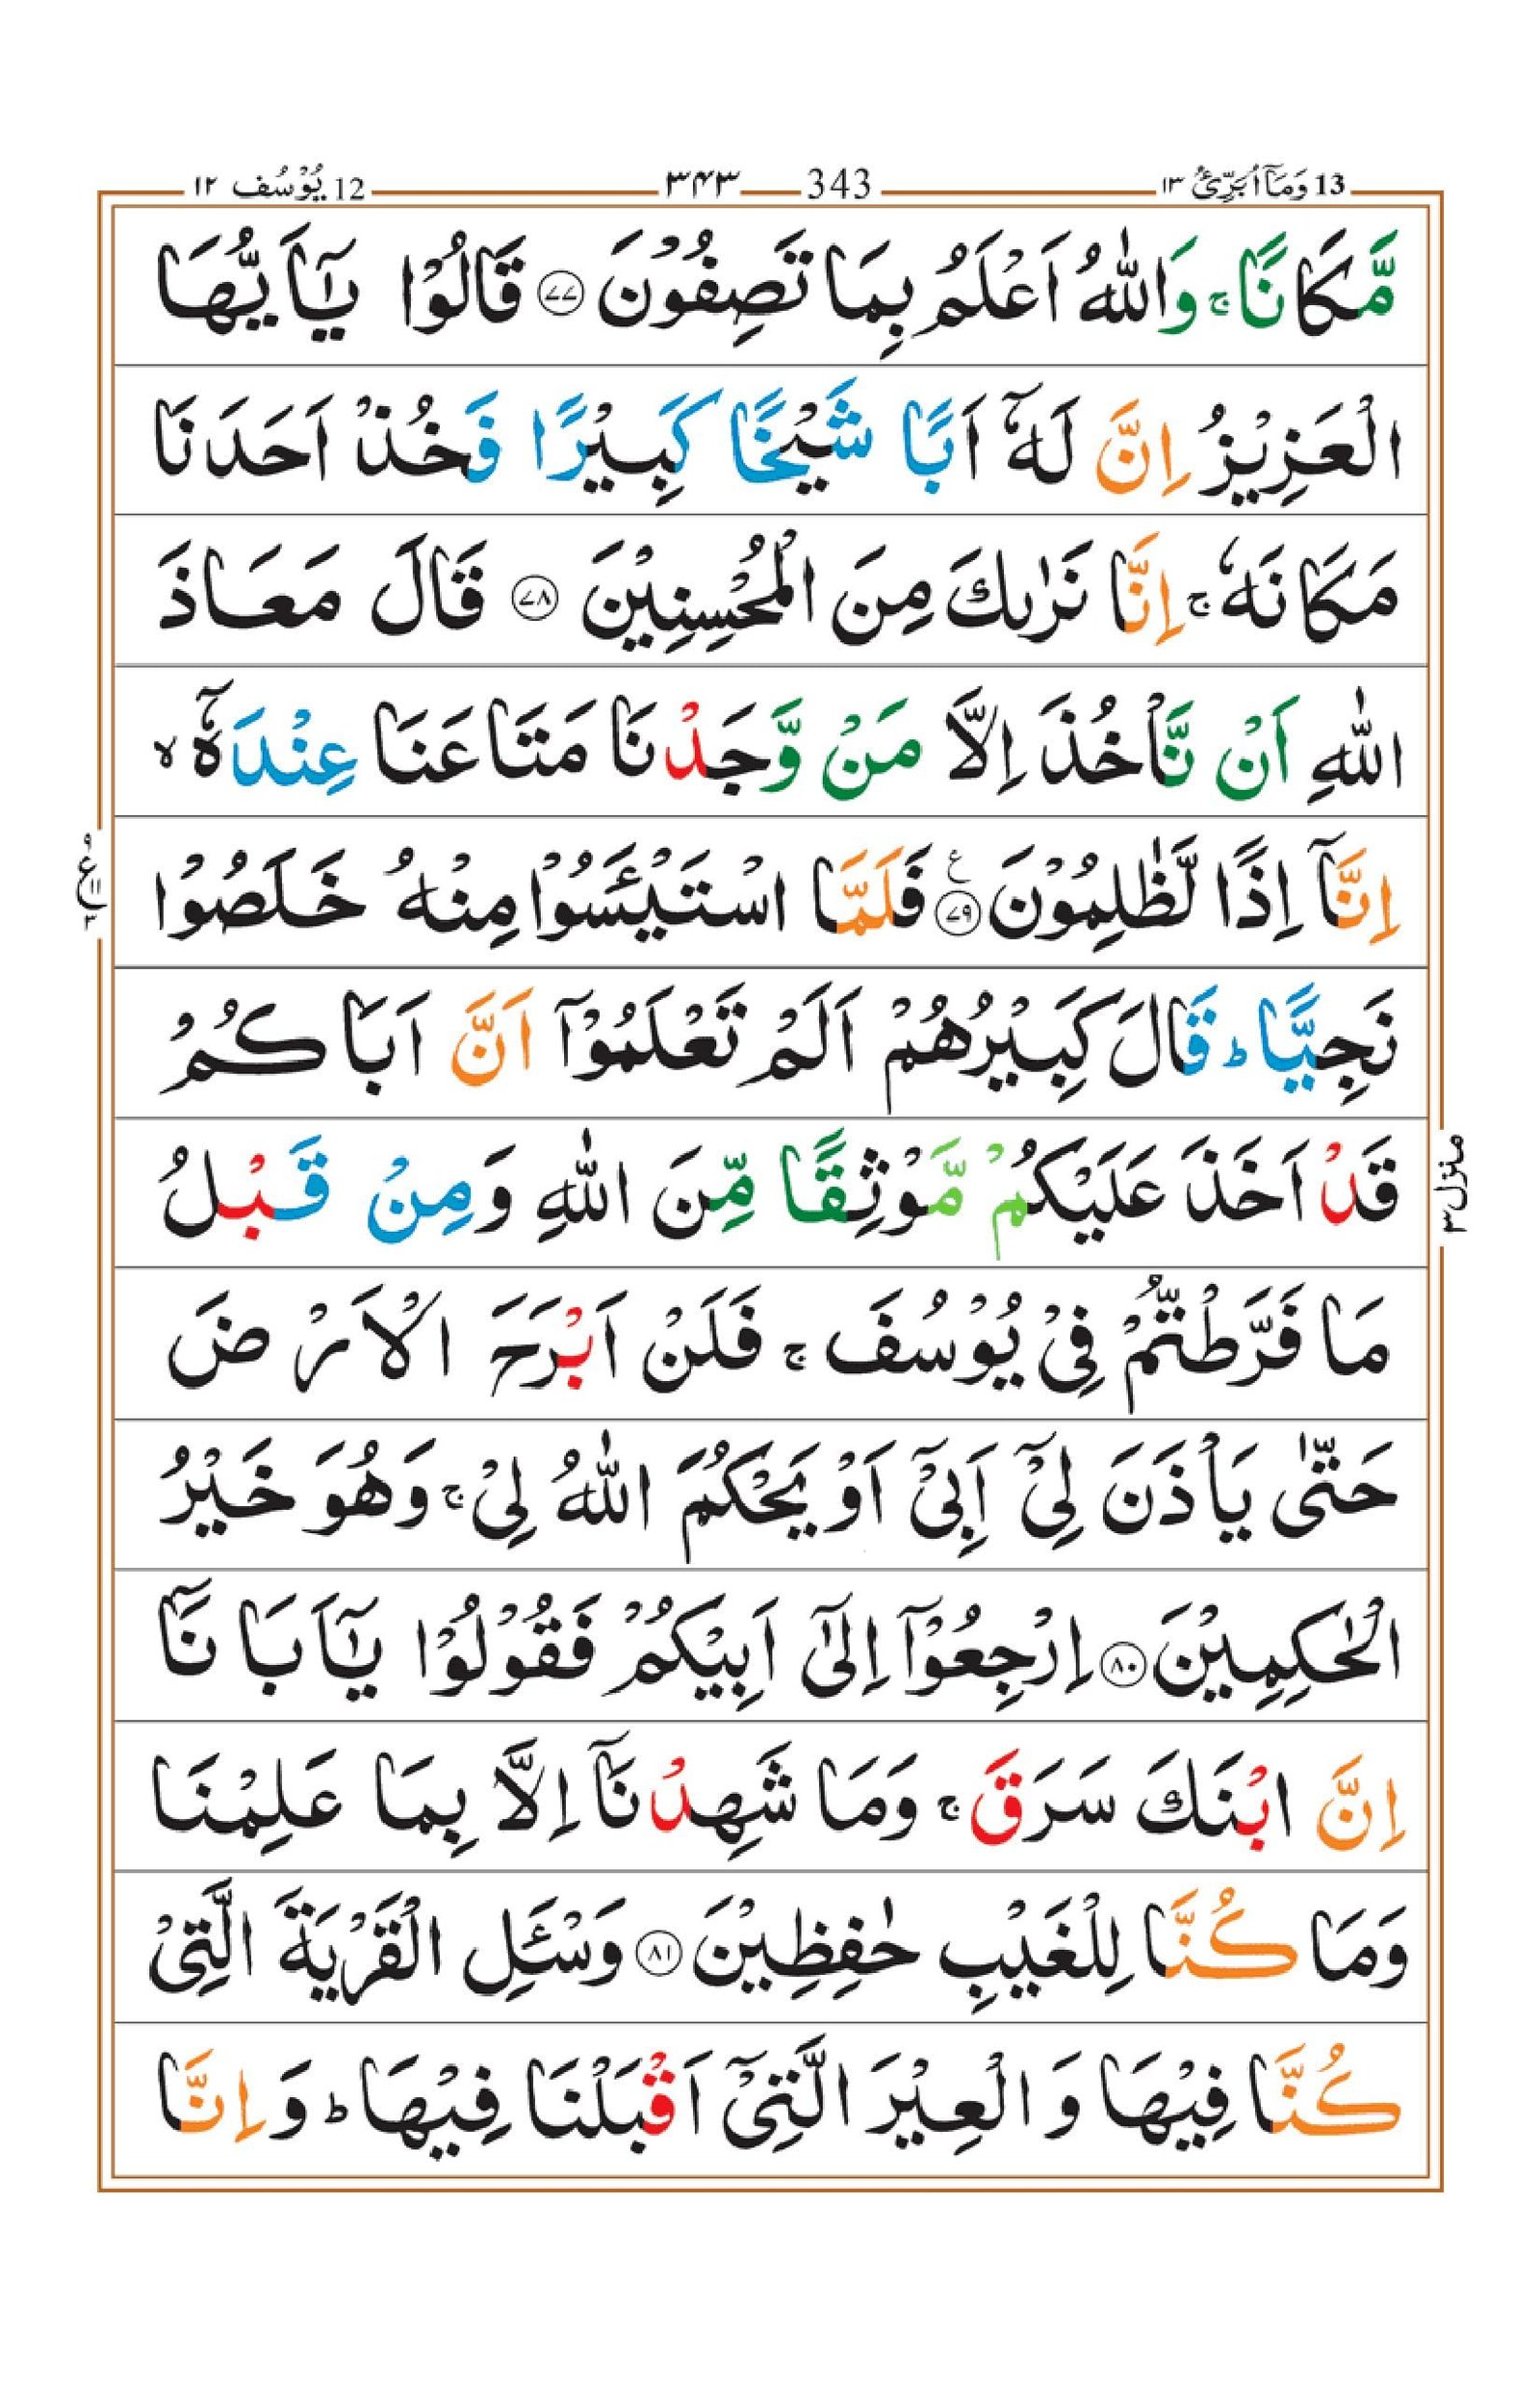 13 وَمَاۤ اُبَرِّئُ ١٣ 343 ٣٤٣ 12 يُوْسُف ١٢
مَّكَانًا ۚ وَاللّٰهُ اَعْلَمُ بِمَا تَصِفُوْنَ ﴿۷۷﴾ قَالُوْا يٰۤاَيُّهَا
الْعَزِيْزُ اِنَّ لَهٗۤ اَبًا شَيْخًا كَبِيْرًا فَخُذْ اَحَدَنَا
مَكَانَهٗ ۚ اِنَّا نَرٰىكَ مِنَ الْمُحْسِنِيْنَ ﴿۷۸﴾ قَالَ مَعَاذَ
اللّٰهِ اَنْ نَّاْخُذَ اِلَّا مَنْ وَّجَدْنَا مَتَاعَنَا عِنْدَهٗۤ ۙ
اِنَّاۤ اِذًا لَّظٰلِمُوْنَ ﴿۷۹﴾ ع فَلَمَّا اسْتَيْـَٔسُوْا مِنْهُ خَلَصُوْا
نَجِيًّا ؕ قَالَ كَبِيْرُهُمْ اَلَمْ تَعْلَمُوْۤا اَنَّ اَبَاكُمْ
قَدْ اَخَذَ عَلَيْكُمْ مَّوْثِقًا مِّنَ اللّٰهِ وَمِنْ قَبْلُ
مَا فَرَّطْتُّمْ فِيْ يُوْسُفَ ۚ فَلَنْ اَبْرَحَ الْاَرْضَ
حَتّٰى يَاْذَنَ لِيْۤ اَبِيْۤ اَوْ يَحْكُمَ اللّٰهُ لِيْ ۚ وَهُوَ خَيْرُ
الْحٰكِمِيْنَ ﴿۸۰﴾ اِرْجِعُوْۤا اِلٰۤى اَبِيْكُمْ فَقُوْلُوْا يٰۤاَبَانَاۤ
اِنَّ ابْنَكَ سَرَقَ ۚ وَمَا شَهِدْنَاۤ اِلَّا بِمَا عَلِمْنَا
وَمَا كُنَّا لِلْغَيْبِ حٰفِظِيْنَ ﴿۸۱﴾ وَسْـَٔلِ الْقَرْيَةَ الَّتِيْ
كُنَّا فِيْهَا وَ الْعِيْرَ الَّتِيْۤ اَقْبَلْنَا فِيْهَا ؕ وَ اِنَّا
ع ٩ ١١ ٣
منزل ٣